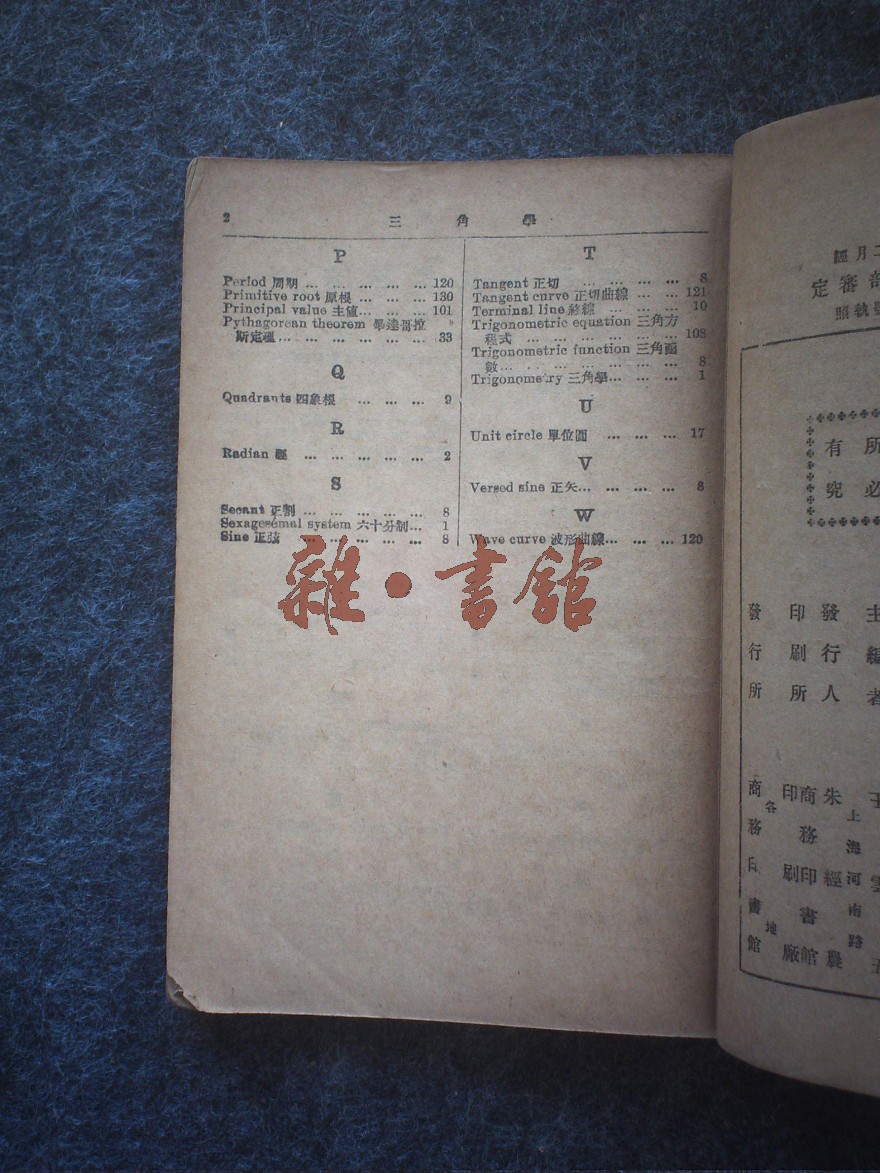 2 三角學
P
Period 周期 ... ... ... ... ... 120
Primitive root 原根 ... ... ... 130
Principal value 主値... ... ... 101
Pythagorean theorem 畢達哥拉
斯定理... ... ... ... ... ... 33
Q
Quadrants 四象根 ... ... ... 9
R
Radian ... ... ... ... ... ... 2
S
Secant 正割 ... ... ... ... ... 8
Sexagesémal system 六十分制... 1
Sine 正弦 ... ... ... ... ... 8
T
Tangent 正切 ... ... ... ... 8
Tangent curve 正切曲線 ... ... 121
Terminal line 終線 ... ... ... 10
Trigonometric equation 三角方
程式 ... ... ... ... ... ... 108
Trigonometric function 三角函
數... ... ... ... ... ... ... 8
Trigonometry 三角學... ... ... 1
U
Unit circle 單位圓 ... ... ... 17
V
Versed sine 正矢... ... ... ... 8
W
Wave curve 波形曲線... ... ... 120
雜·書館
月經
部審定
號執照
所有
必究
主編者
發行人
印刷所
發行所
王雲五
上海河南路
朱經農
商務印書館
印刷廠
各地
商務印書館